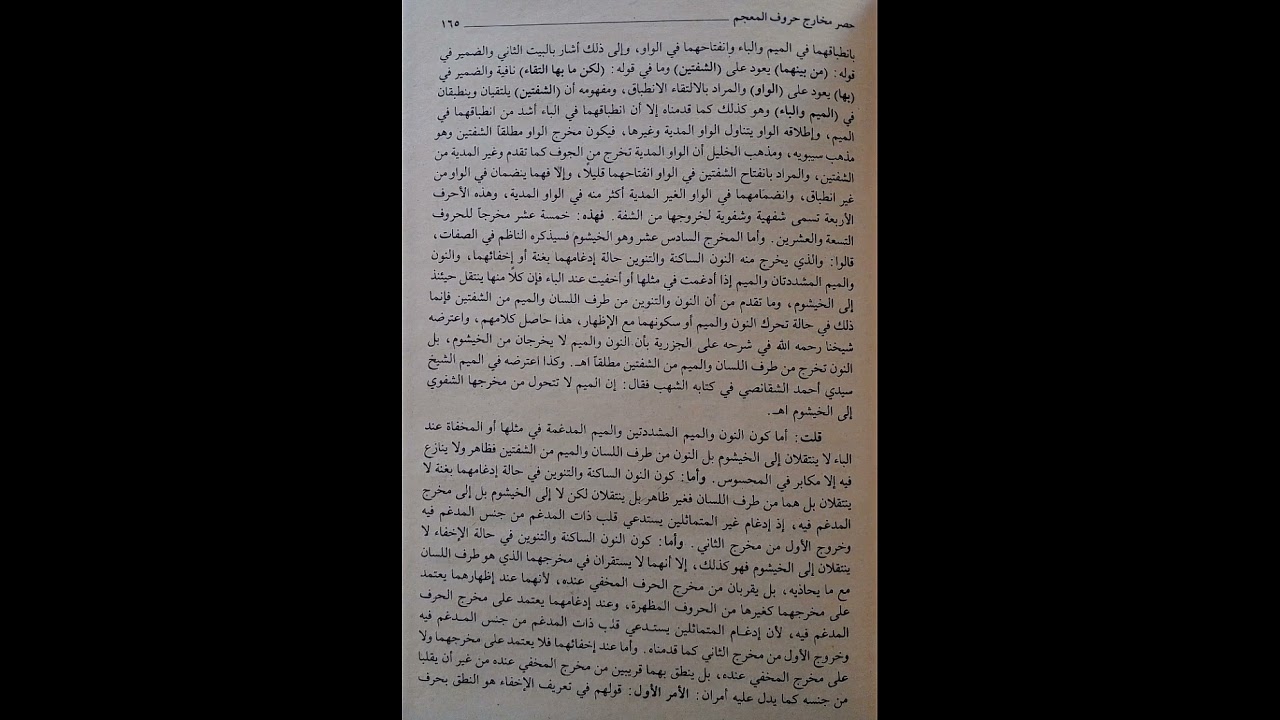 حصر مخارج حروف المعجم ١٦٥
بانطباقهما في الميم والباء وانفتاحهما في الواو، وإلى ذلك أشار بالبيت الثاني والضمير في
قوله: (من بينهما) يعود على (الشفتين) وما في قوله: (لكن ما بها التقاء) نافية والضمير في
(بها) يعود على (الواو) والمراد بالالتقاء الانطباق، ومفهومه أن (الشفتين) يلتقيان وينطبقان
في (الميم والباء) وهو كذلك كما قدمناه إلا أن انطباقهما في الباء أشد من انطباقهما في
الميم، وإطلاقه الواو يتناول الواو المدية وغيرها، فيكون مخرج الواو مطلقاً الشفتين وهو
مذهب سيبويه، ومذهب الخليل أن الواو المدية تخرج من الجوف كما تقدم وغير المدية من
الشفتين، والمراد بانفتاح الشفتين في الواو انفتاحهما قليلًا، وإلا فهما ينضمان في الواو من
غير انطباق، وانضمامهما في الواو الغير المدية أكثر منه في الواو المدية، وهذه الأحرف
الأربعة تسمى شفهية وشفوية لخروجها من الشفة. فهذه: خمسة عشر مخرجاً للحروف
التسعة والعشرين. وأما المخرج السادس عشر وهو الخيشوم فسيذكره الناظم في الصفات،
قالوا: والذي يخرج منه النون الساكنة والتنوين حالة إدغامهما بغنة أو إخفائهما، والنون
والميم المشددتان والميم إذا أدغمت في مثلها أو أخفيت عند الباء فإن كلاً منها ينتقل حيئنذ
إلى الخيشوم، وما تقدم من أن النون والتنوين من طرف اللسان والميم من الشفتين فإنما
ذلك في حالة تحرك النون والميم أو سكونهما مع الإظهار، هذا حاصل كلامهم، واعترضه
شيخنا رحمه الله في شرحه على الجزرية بأن النون والميم لا يخرجان من الخيشوم، بل
النون تخرج من طرف اللسان والميم من الشفتين مطلقاً اهـ. وكذا اعترضه في الميم الشيخ
سيدي أحمد الشقانصي في كتابه الشهب فقال: إن الميم لا تتحول من مخرجها الشفوي
إلى الخيشوم اهـ.
قلت: أما كون النون والميم المشددتين والميم المدغمة في مثلها أو المخفاة عند
الباء لا ينتقلان إلى الخيشوم بل النون من طرف اللسان والميم من الشفتين فظاهر ولا ينازع
فيه إلا مكابر في المحسوس. وأما: كون النون الساكنة والتنوين في حالة إدغامهما بغنة لا
ينتقلان بل هما من طرف اللسان فغير ظاهر بل ينتقلان لكن لا إلى الخيشوم بل إلى مخرج
المدغم فيه، إذ إدغام غير المتماثلين يستدعي قلب ذات المدغم من جنس المدغم فيه
وخروج الأول من مخرج الثاني. وأما: كون النون الساكنة والتنوين في حالة الإخفاء لا
ينتقلان إلى الخيشوم فهو كذلك، إلا أنهما لا يستقران في مخرجهما الذي هو طرف اللسان
مع ما يحاذيه، بل يقربان من مخرج الحرف المخفي عنده، لأنهما عند إظهارهما يعتمد
على مخرجهما كغيرها من الحروف المظهرة، وعند إدغامهما يعتمد على مخرج الحرف
المدغم فيه، لأن إدغـام المتماثلين يستـدعي قلب ذات المدغم من جنس المـدغم فيه
وخروج الأول من مخرج الثاني كما قدمناه. وأما عند إخفائهما فلا يعتمد على مخرجهما ولا
على مخرج المخفي عنده، بل ينطق بهما قريبين من مخرج المخفي عنده من غير أن يقلبا
من جنسه كما يدل عليه أمران: الأمر الأول: قولهم في تعريف الإخفاء هو النطق بحرف